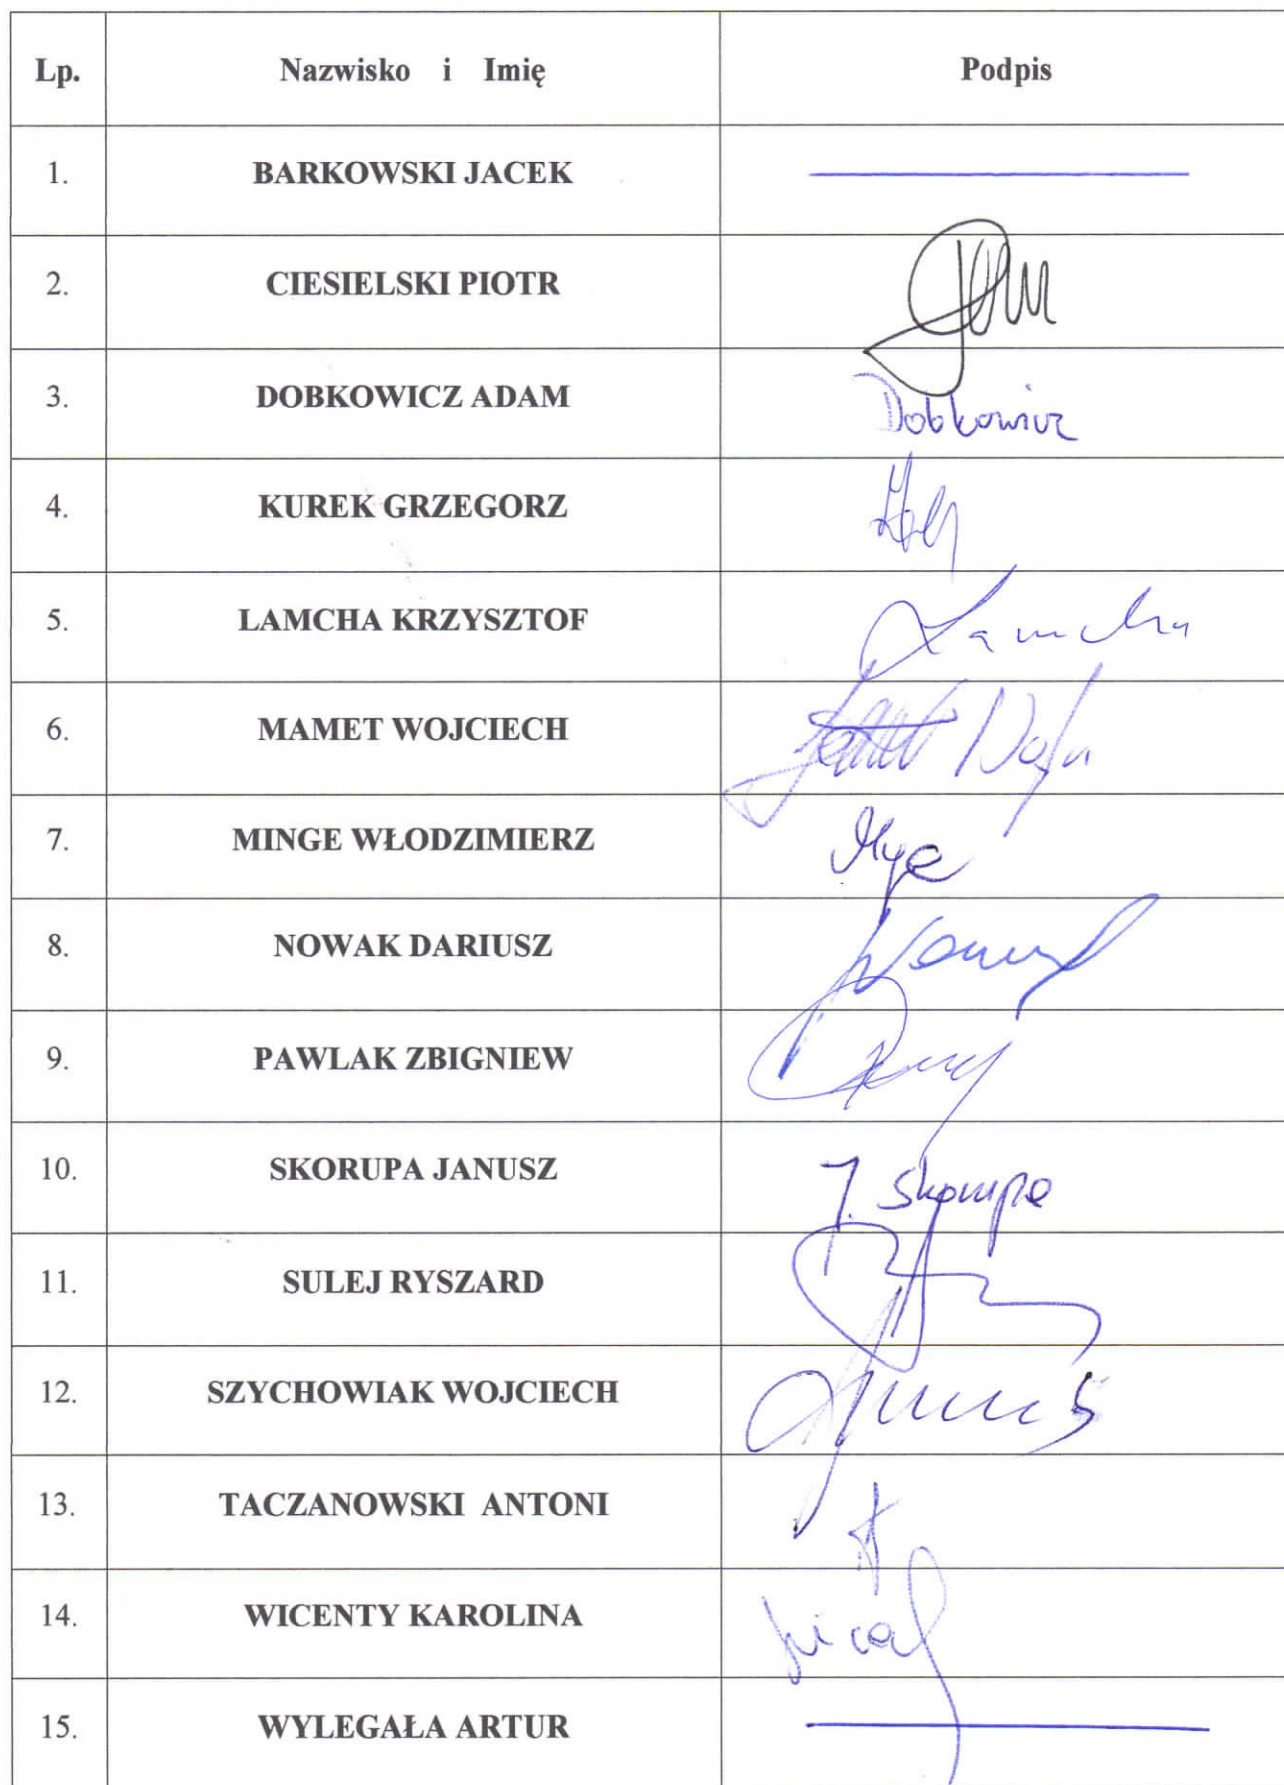 Lp. Nazwisko i Imię Podpis
1. BARKOWSKI JACEK
2. CIESIELSKI PIOTR
3. DOBKOWICZ ADAM Dobkowicz
4. KUREK GRZEGORZ
5. LAMCHA KRZYSZTOF Lamcha
6. MAMET WOJCIECH
7. MINGE WŁODZIMIERZ
8. NOWAK DARIUSZ
9. PAWLAK ZBIGNIEW
10. SKORUPA JANUSZ J. Skorupa
11. SULEJ RYSZARD
12. SZYCHOWIAK WOJCIECH
13. TACZANOWSKI ANTONI
14. WICENTY KAROLINA
15. WYLEGAŁA ARTUR